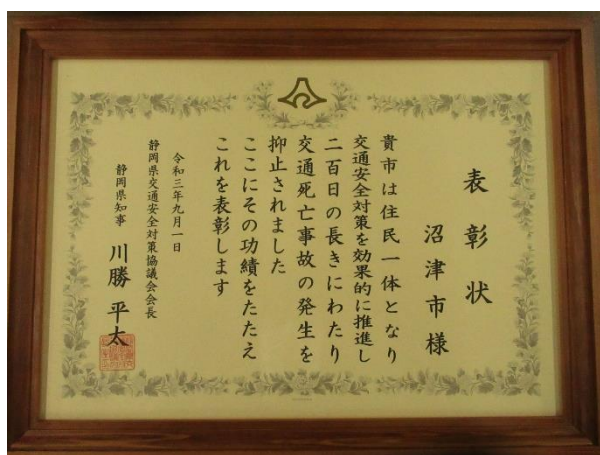 表彰状
沼津市様
貴市は住民一体となり
交通安全対策を効果的に推進し
二百日の長きにわたり
交通死亡事故の発生を
抑止されました
ここにその功績をたたえ
これを表彰します
令和三年九月一日
静岡県交通安全対策協議会会長
静岡県知事 川勝平太